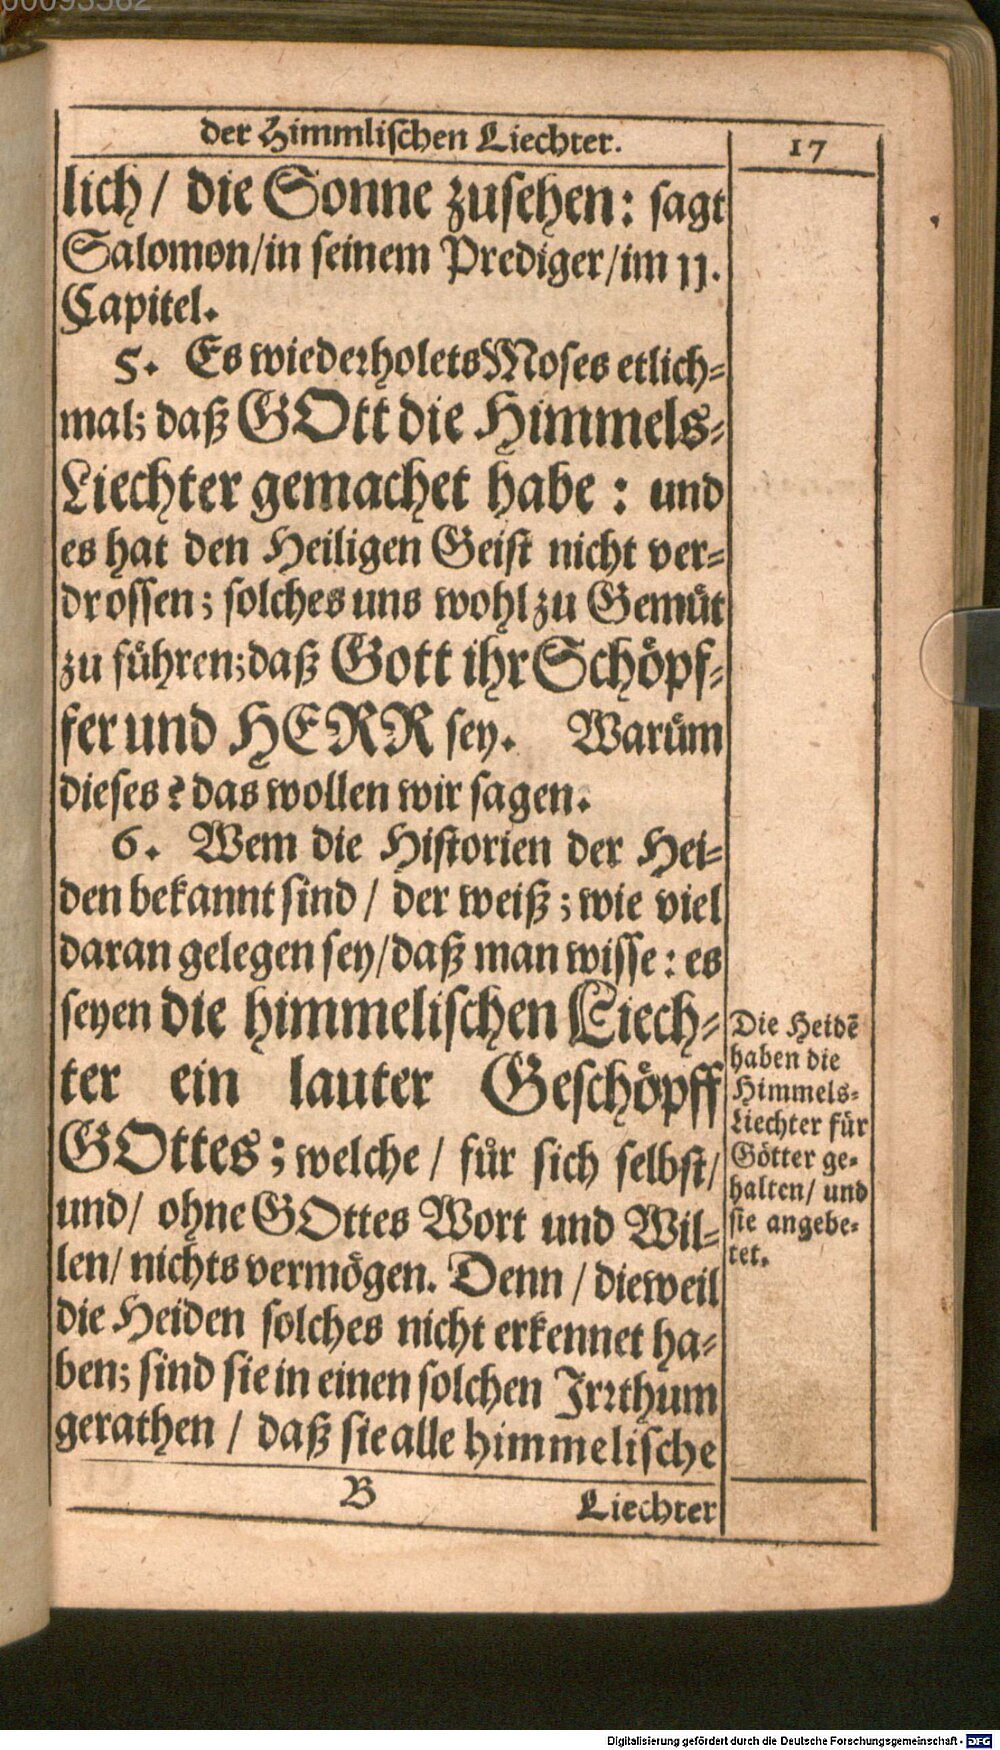 00093562
der Himmlischen Liechter.
17
lich / die Sonne zusehen: sagt
Salomon/in seinem Prediger/im 11.
Capitel.
5. Es wiederholets Moses etlich=
mal; daß GOtt die Himmels=
Liechter gemachet habe : und
es hat den Heiligen Geist nicht ver=
drossen; solches uns wohl zu Gemüt
zu führen; daß Gott ihr Schöpf=
fer und HERR sey. Warüm
dieses? das wollen wir sagen.
6. Wem die Historien der Hei=
den bekannt sind / der weiß; wie viel
daran gelegen sey/daß man wisse: es
seyen die himmelischen Liech=
ter ein lauter Geschöpff
GOttes; welche / für sich selbst/
und/ ohne GOttes Wort und Wil=
len/ nichts vermögen. Denn / dieweil
die Heiden solches nicht erkennet ha=
ben; sind sie in einen solchen Irrthum
gerathen / daß sie alle himmelische
Die Heidē
haben die
Himmels=
Liechter für
Götter ge=
halten/ und
sie angebe=
tet.
B
Liechter
Digitalisierung gefördert durch die Deutsche Forschungsgemeinschaft - DFG